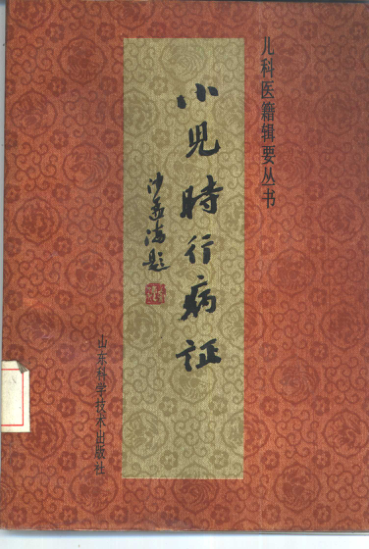 儿科医籍辑要丛书
小児時行病証
沙孟海题
山东科学技术出版社